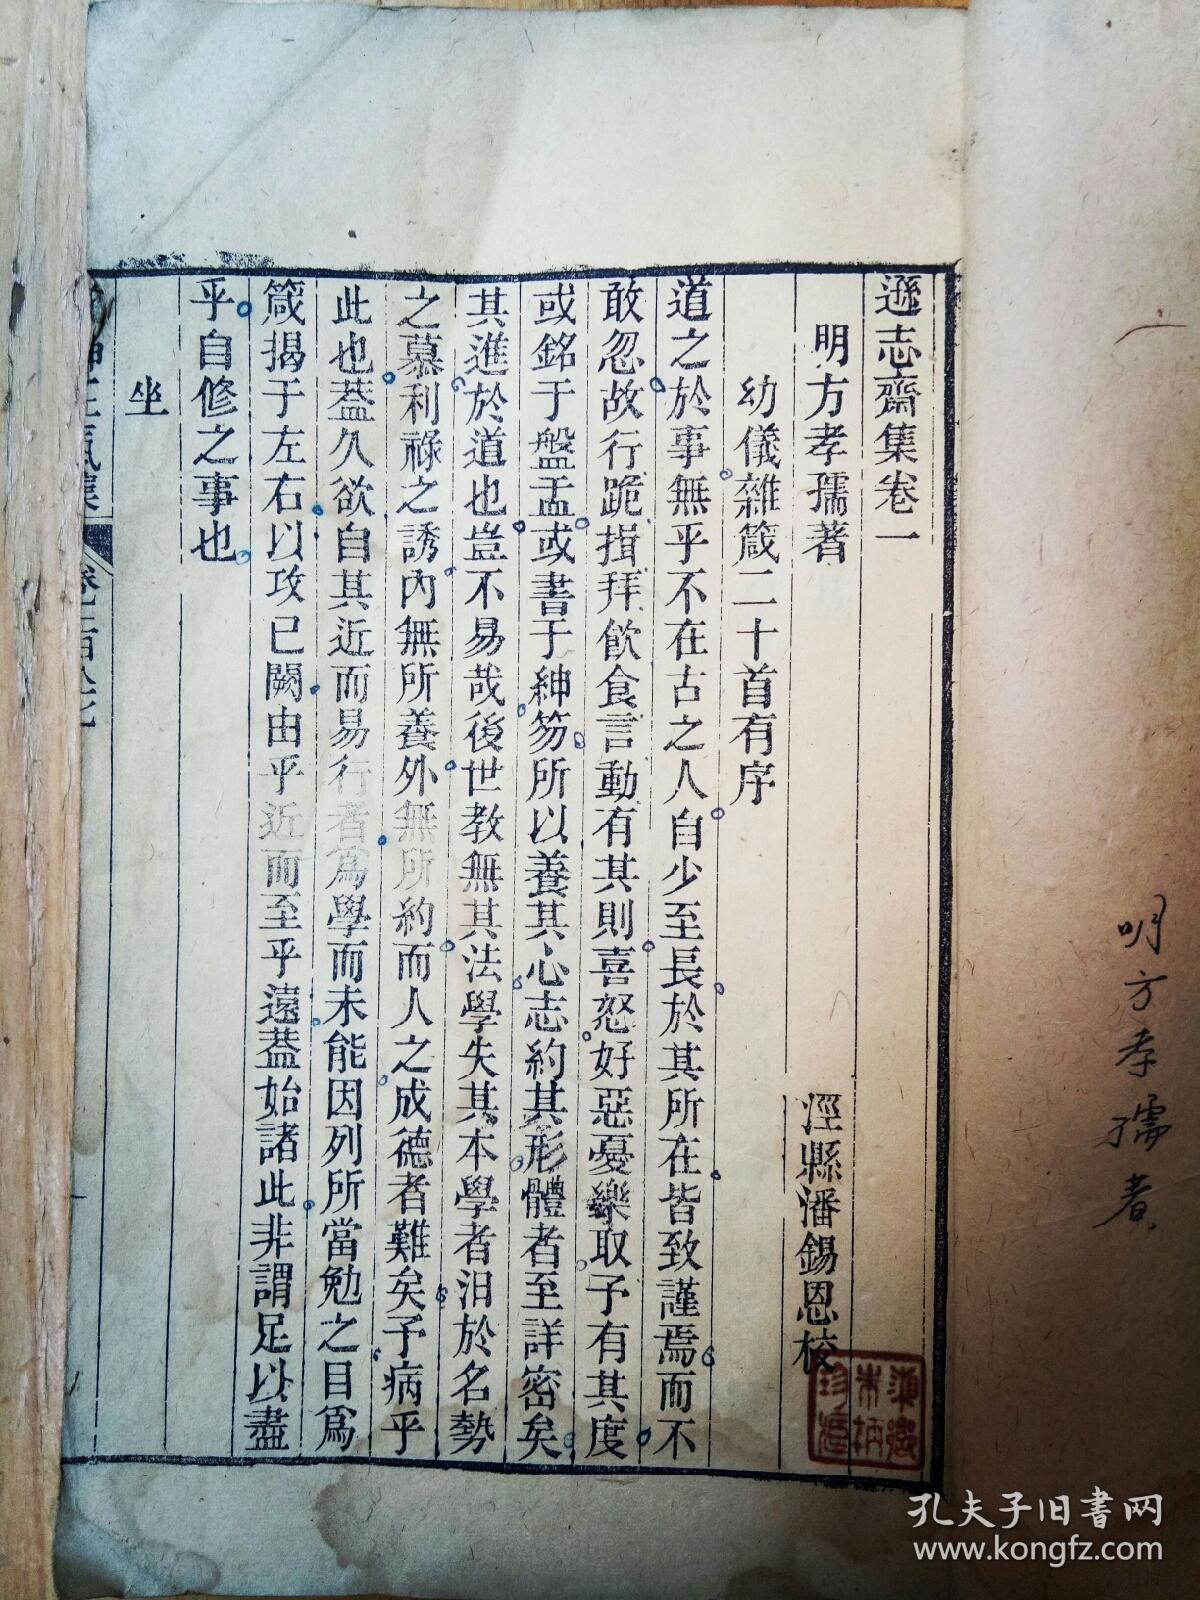 遜志齋集卷一
明方孝孺著
涇縣潘錫恩校
幼儀雜箴二十首有序
道之於事無乎不在古之人自少至長於其所在皆致謹焉而不
敢忽故行跪揖拜飲食言動有其則喜怒好惡憂樂取予有其度
或銘于盤盂或書于紳笏所以養其心志約其形體者至詳密矣
其進於道也豈不易哉後世教無其法學失其本學者汨於名勢
之慕利祿之誘內無所養外無所約而人之成德者難矣予病乎
此也葢久欲自其近而易行者爲學而未能因列所當勉之目爲
箴揭于左右以攻己闕由乎近而至乎遠葢始諸此非謂足以盡
乎自修之事也
坐
明方孝孺著
孔夫子旧书网
www.kongfz.com